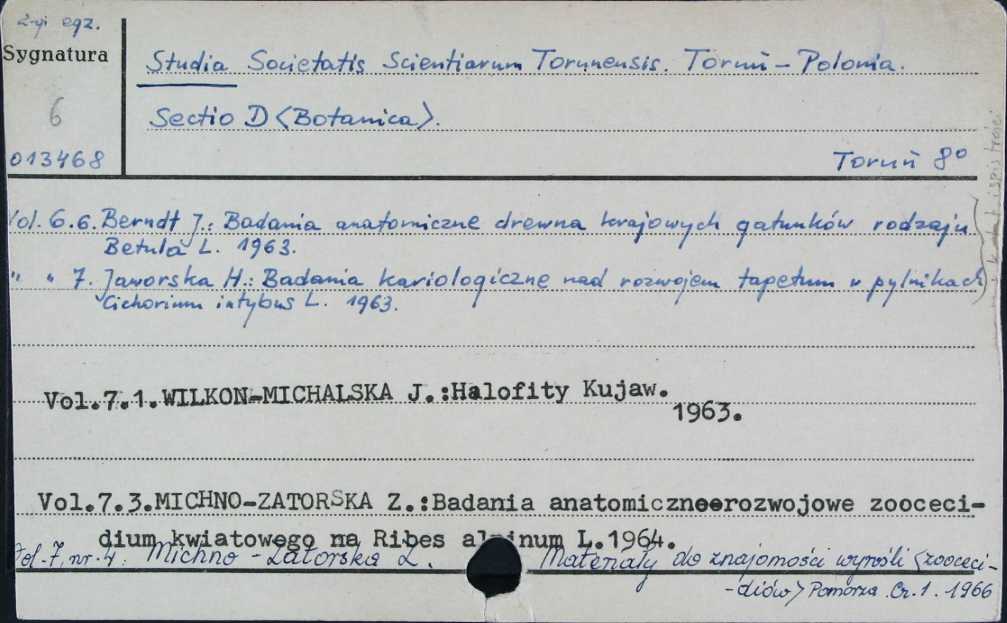 2-gi egz.
Sygnatura
6
013468
Studia Societatis Scientiarum Torunensis. Toruń - Polonia.
Sectio D <Botanica>.
Toruń 8°
Vol. 6.6. Berndt J.: Badania anatomiczne drewna krajowych gatunków rodzaju
Betula L. 1963.
" " 7. Jaworska H.: Badania kariologiczne nad rozwojem tapetum w pylnikach
Cichorium intybus L. 1963.
Vol.7.1.WILKON-MICHALSKA J.:Halofity Kujaw.
1963.
Vol.7.3.MICHNO-ZATORSKA Z.:Badania anatomicznoerozwojowe zooceci-
dium kwiatowego na Ribes alpinum L.1964.
Vol. 7, nr. 4: Michno - Zatorska Z. Materiały do znajomości wyrośli <zooceci-
-diów> Pomorza. Cz. 1. 1966